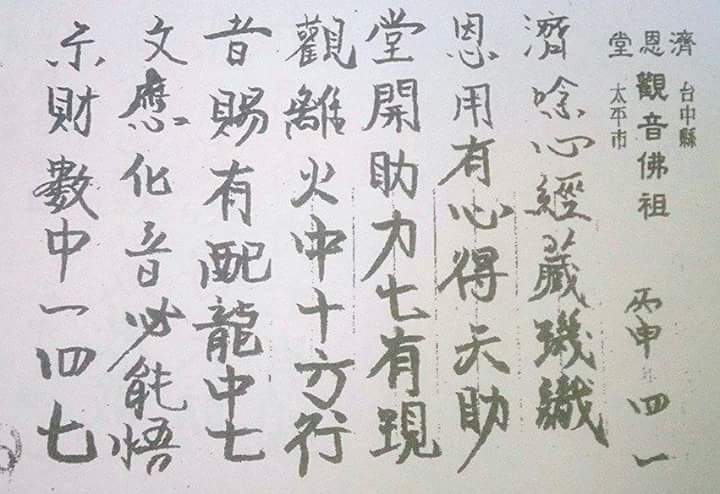 濟恩堂
台中縣太平市
觀音佛祖
丙申 四一
濟唸心經藏璣識
恩用有心得天助
堂開助力七有現
觀離火中十方行
音賜有配龍中七
文應化音必能悟
示財數中一四七